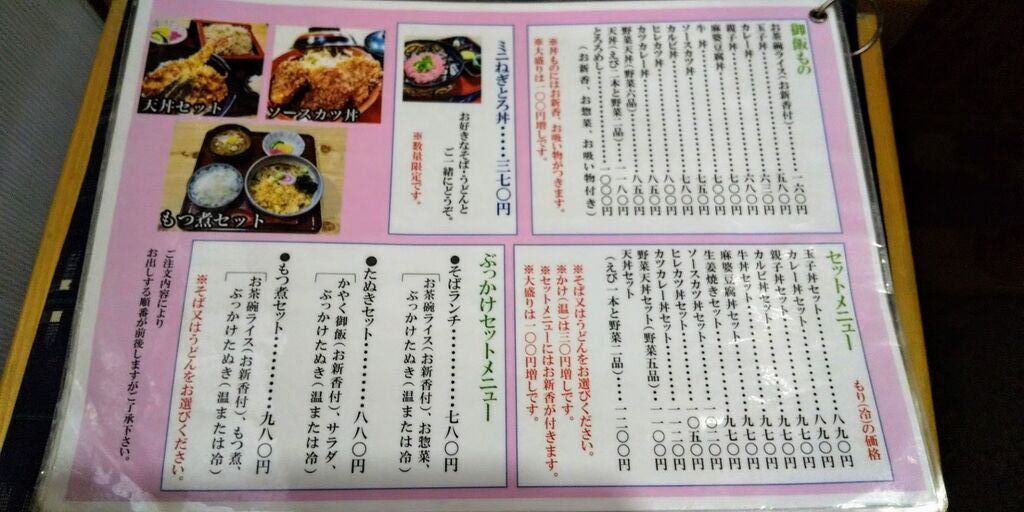 御飯もの
お茶碗ライス(お新香付)・・・・一六〇円
玉子丼・・・・・・・・五八〇円
カレー丼・・・・・・・・六三〇円
親子丼・・・・・・・・六八〇円
麻婆豆腐丼・・・・・・・・
牛丼・・・・・・・・七五〇円
ソースカツ丼・・・・・・・・七八〇円
カルビ丼・・・・・・・・
ヒレカツ丼・・・・・・・・八五〇円
カツカレー丼・・・・・・・・八五〇円
野菜天丼(野菜六品)・・・・八五〇円
天丼(えび二本と野菜二品)・・・一一八〇円
とろろめし・・・・・・・・一〇〇〇円
(お新香、お惣菜、お吸い物付き)
※丼ものにはお新香、お吸い物がつきます。
※大盛りは一〇〇円増しです。
ミニねぎとろ丼・・・・三七〇円
お好きなそば・うどんと
ご一緒にどうぞ。
※数量限定です。
天丼セット
ソースカツ丼
もつ煮セット
セットメニュー
もり(冷)の価格
玉子丼セット・・・・・・・・八九〇円
カレー丼セット・・・・・・・・八九〇円
親子丼セット・・・・・・・・九七〇円
カルビ丼セット・・・・・・・・九七〇円
牛丼セット・・・・・・・・九七〇円
麻婆豆腐丼セット・・・・・・・・九七〇円
生姜焼きセット・・・・・・・・一〇二〇円
ソースカツ丼セット・・・・・・・・一〇五〇円
ヒレカツ丼セット・・・・・・・・一一二〇円
カツカレー丼セット・・・・・・・・一一二〇円
野菜天丼セット(野菜五品)・・・・一一〇〇円
天丼セット・・・・・・・・一二〇〇円
(えび一本と野菜二品)
※そば又はうどんをお選びください。
※かけ(温)は三〇円増しです。
※セットメニューにはお新香が付きます。
※大盛りは一〇〇円増しです。
ぶっかけセットメニュー
●そばランチ・・・・・・・・七八〇円
お茶碗ライス(お新香付)、お惣菜、
ぶっかけたぬき(温または冷)
●たぬきセット・・・・・・・・八八〇円
かやく御飯(お新香付)、サラダ、
ぶっかけたぬき(温または冷)
●もつ煮セット・・・・・・・・九八〇円
お茶碗ライス(お新香付)、もつ煮、
ぶっかけたぬき(温または冷)
※そば又はうどんをお選びください。
ご注文内容により
お出しする順番が前後しますがご了承下さい。